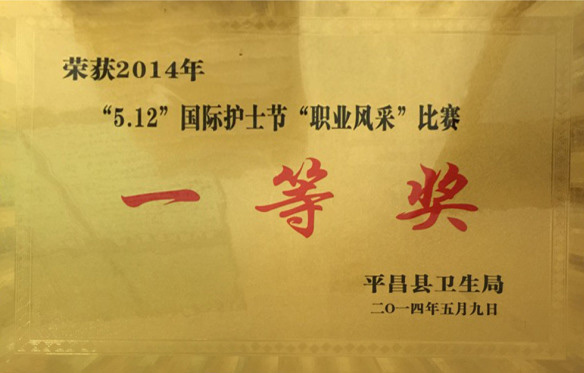 荣获2014年
“5.12”国际护士节“职业风采”比赛
一等奖
平昌县卫生局
二〇一四年五月九日